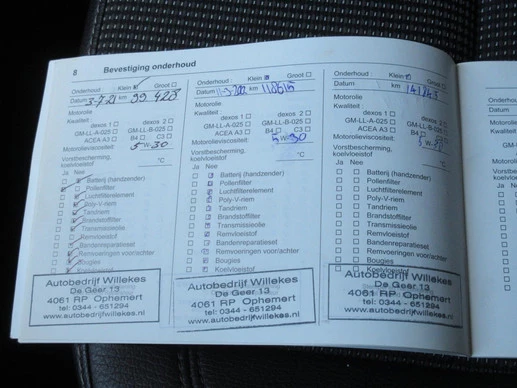 8 Bevestiging onderhoud
Onderhoud: Klein Groot
Datum 3-7-21 km 99 423
Motorolie
Kwaliteit:
dexos 1 dexos 2
GM-LL-A-025 GM-LL-B-025
ACEA A3 B4 C3
Motorolieviscositeit: 5 W-30
Vorstbescherming,
koelvloeistof °C
Ja Nee
Batterij (handzender)
Pollenfilter
Luchtfilterelement
Poly-V-riem
Tandriem
Brandstoffilter
Transmissieolie
Remvloeistof
Bandenreparatieset
Remvoeringen voor/achter
Bougies
Koelvloeistof
Autobedrijf Willekes
De Geer 13
4061 RP Ophemert
tel: 0344 - 651294
www.autobedrijfwillekes.nl
Onderhoud: Klein Groot
Datum km 118615
Motorolie
Kwaliteit:
dexos 1 dexos 2
GM-LL-A-025 GM-LL-B-025
ACEA A3 B4 C3
Motorolieviscositeit: 5 W-30
Vorstbescherming,
koelvloeistof °C
Ja Nee
Batterij (handzender)
Pollenfilter
Luchtfilterelement
Poly-V-riem
Tandriem
Brandstoffilter
Transmissieolie
Remvloeistof
Bandenreparatieset
Remvoeringen voor/achter
Bougies
Koelvloeistof
Autobedrijf Willekes
De Geer 13
4061 RP Ophemert
tel: 0344 - 651294
www.autobedrijfwillekes.nl
Onderhoud: Klein Groot
Datum km
Motorolie
Kwaliteit:
dexos 1 dexos 2
GM-LL-A-025 GM-LL-B-025
ACEA A3 B4 C3
Motorolieviscositeit: 5 W-
Vorstbescherming,
koelvloeistof °C
Ja Nee
Batterij (handzender)
Pollenfilter
Luchtfilterelement
Poly-V-riem
Tandriem
Brandstoffilter
Transmissieolie
Remvloeistof
Bandenreparatieset
Remvoeringen voor/achter
Bougies
Koelvloeistof
Autobedrijf Willekes
De Geer 13
4061 RP Ophemert
tel: 0344 - 651294
www.autobedrijfwillekes.nl